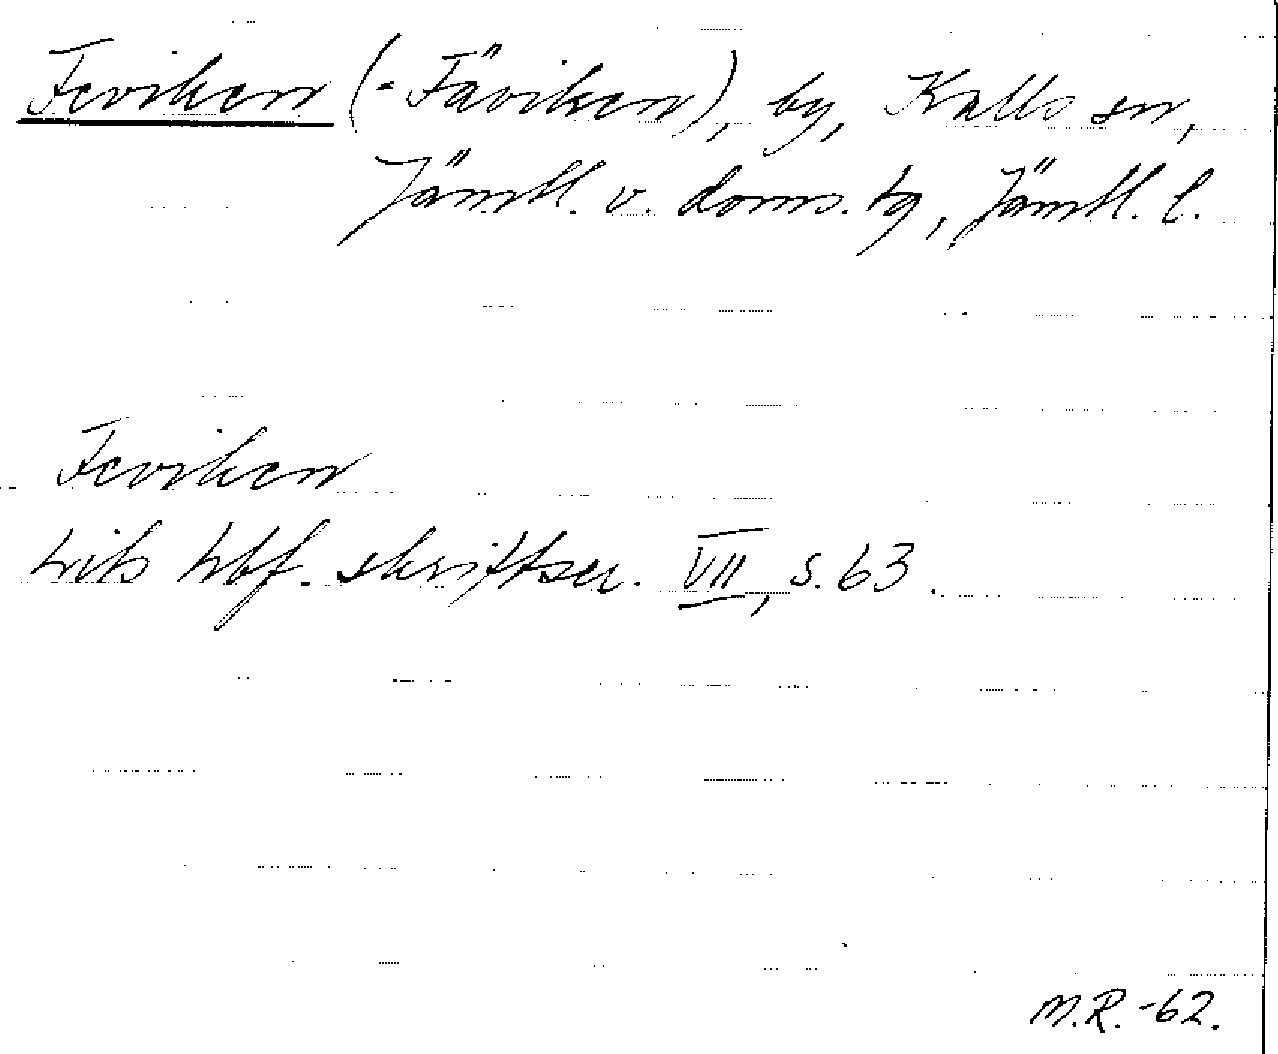 Feviken (= Fäviken), by, Kalls sn,
Jämtl. v. doms. tg, Jämtl. l.
Feviken
hbf. skriftser. VII, s. 63.
M.R. -62.